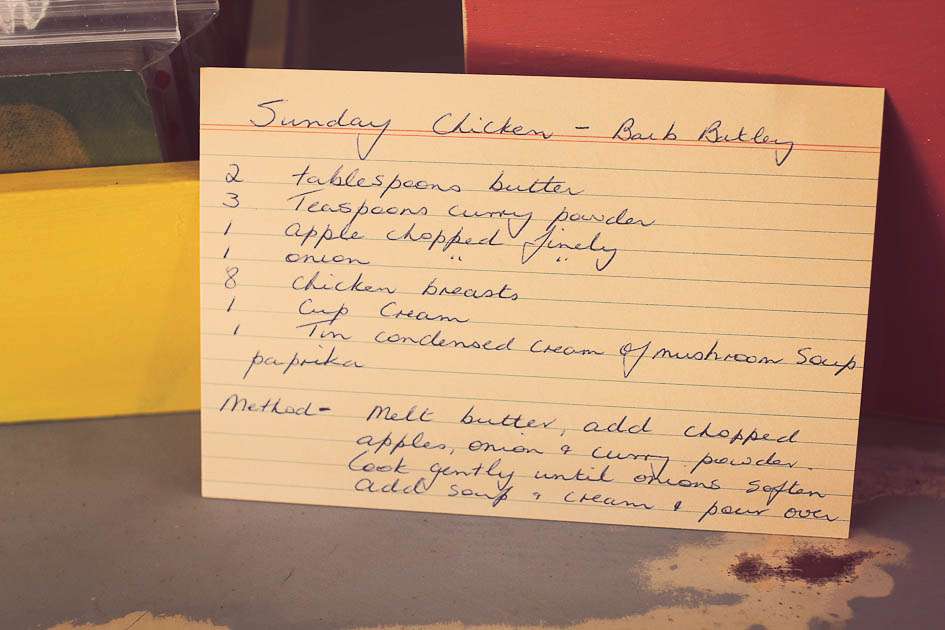 Sunday Chicken - Barb Batley
2 tablespoons butter
3 Teaspoons curry powder
1 apple chopped finely
1 onion " "
8 chicken breasts
1 Cup Cream
1 Tin condensed cream of mushroom Soup
paprika
Method - Melt butter, add chopped
apples, onion & curry powder.
Cook gently until onions soften
add soup & cream & pour over